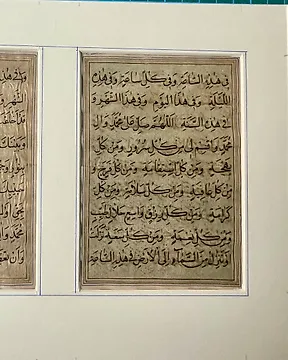 في هذه الساعة وفي كل الساعة وفي هذه
الليلة وفي هذا اليوم وفي هذا الشهر و
في هذه السنة اللهم صل على محمد وآل
محمد واقسم لي من كل سرور ومن كل
بهجة ومن كل استقامة ومن كل فرج و
من كل عافية ومن كل سلامة ومن كل
كرامة ومن كل رزق واسع حلال طيب
ومن كل نعمة ومن كل سعة نزلت
او تنزل من السماء الى الأرض في هذه الساعة
وفي هذ
الشهر و
قد اخلقت
وبينك
محمد وآل